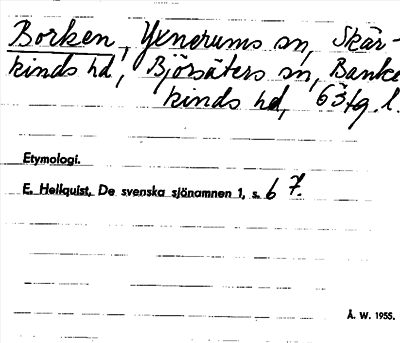 Borken, Yxnerums sn, Skär-
kinds hd, Björsäters sn, Banke
kinds hd, Ög. l.
Etymologi.
E. Hellquist, De svenska sjönamnen 1, s. 67.
Å. W. 1955.